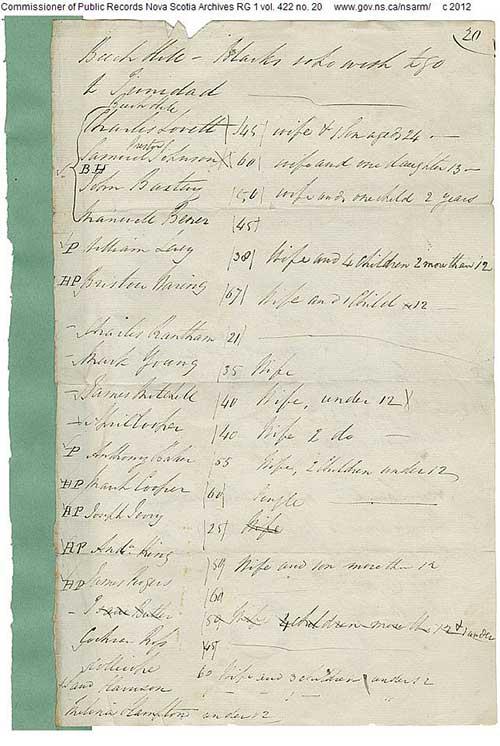 Commissioner of Public Records Nova Scotia Archives RG 1 vol. 422 no. 20 www.gov.ns.ca/nsarm/ c 2012
20
Beech Hill - Blacks who wish to go
to Trinidad
Beech Hill
Charles Lovett 45 wife & 1 son aged 24 -
Preston
B H Samuel Johnson 60 wife and one daughter 13 -
John Baxter 50 wife and one child 2 years
45
P William 38 Wife and 4 children 2 more than 12
HP 67 Wife and 1 child 12
- Charles 21
- Mark Young 35 Wife
- James Mitchell 40 Wife, under 12
- Cooper 40 Wife 2 do -
P Anthony Baker 55 Wife, 2 children under 12
HP Frank Cooper 60 Single
HP Joseph 25 Wife
HP Andw King
50 Wife and son more than 12
HP James Rogers 60
- Butler 50 Wife 4 children more than 12 & 1 under
45
60 Wife and 3 children under 12
Harrison
Hampton under 12